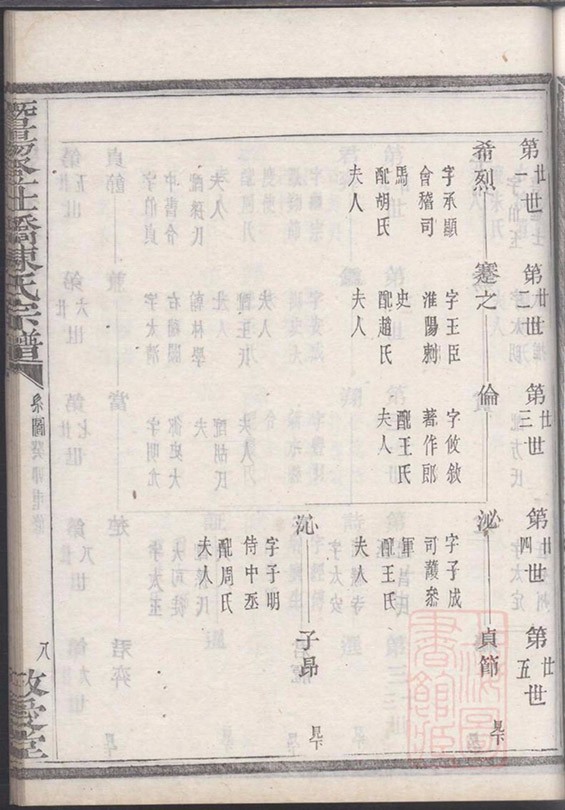 第廿一世
第廿二世
第廿三世
第廿四世
第廿五世
希烈
字承顯
會稽司
馬
配胡氏
夫人
蹇之
字王臣
淮陽刺
史
配趙氏
夫人
倫
字攸敘
著作郎
配王氏
夫人
泌
字子成
司護叅
軍
配王氏
夫人
貞節
見下
沁
字子明
侍中丞
配周氏
夫人
子昂
見下
暨陽 陳氏宗譜
系圖
八
敬愛堂